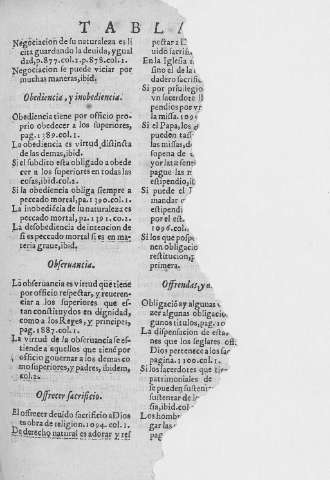 TABLA
Negociacion de su naturaleza es li
cita guardando la deuida, ygual
dad, p.877.col.1.p.878.col.1.
Negociacion se puede viciar por
muchas maneras, ibid.
Obediencia, y inobediencia.
Obediencia tiene por officio pro-
prio obedecer a los superiores,
pag.1389.col.1.
La obediencia es virtud, distincta
de las demas, ibid.
Si el subdito esta obligado a obede
cer a los superiores en todas las
cosas, ibid.col.2.
Si la obediencia obliga siempre a
peccado mortal, pa.1390.col.1.
La inobediẽcia de su naturaleza es
peccado mortal, pa.1391.co.1.
La desobediencia de intencion de
si es peccado mortal si es en ma-
teria graue, ibid.
Obseruancia.
La obseruancia es virtud que tiene
por officio respectar, y reueren-
ciar a los superiores que es-
tan constituydos en dignidad,
como a los Reyes, y principes,
pag.1887.col.1.
La virtud de la obseruancia se es-
tiende a aquellos que tienẽ por
officio gouernar a los demas co
mo superiores, y padres, ibidem,
col.2.
Offrecer sacrificio.
El offrecer deuido sacrificio a Dios
es obra de religion.1094.col.1.
De derecho natural es adorar y res
pectar a D
uido sacrific
En la Iglesia
sino el de la
dadero sacrific
Si por priuilegio
vn sacerdote
pendios por v
la missa.109
Si el Papa, los
pueden tass
las missas, d
sopena de
yor la tassen
pague las
estipendio, i
Si puede el
mandar
estipendi
por el est
1096.col.
Si los que posp
nen obligacio
restitucion,
primera.
Offrendas, y
Obligaciõ ay algunas
zer algunas obligacio
gunos titulos, pag.10
La dispensacion de esta
nes que los seglares off
Dios pertenece a los sa
pagina.1100.col.1.
Si los sacerdotes que tie
patrimoniales de
se pueden sustent
sustentar de l
sia, ibid.col
Los homb
gar las
pag